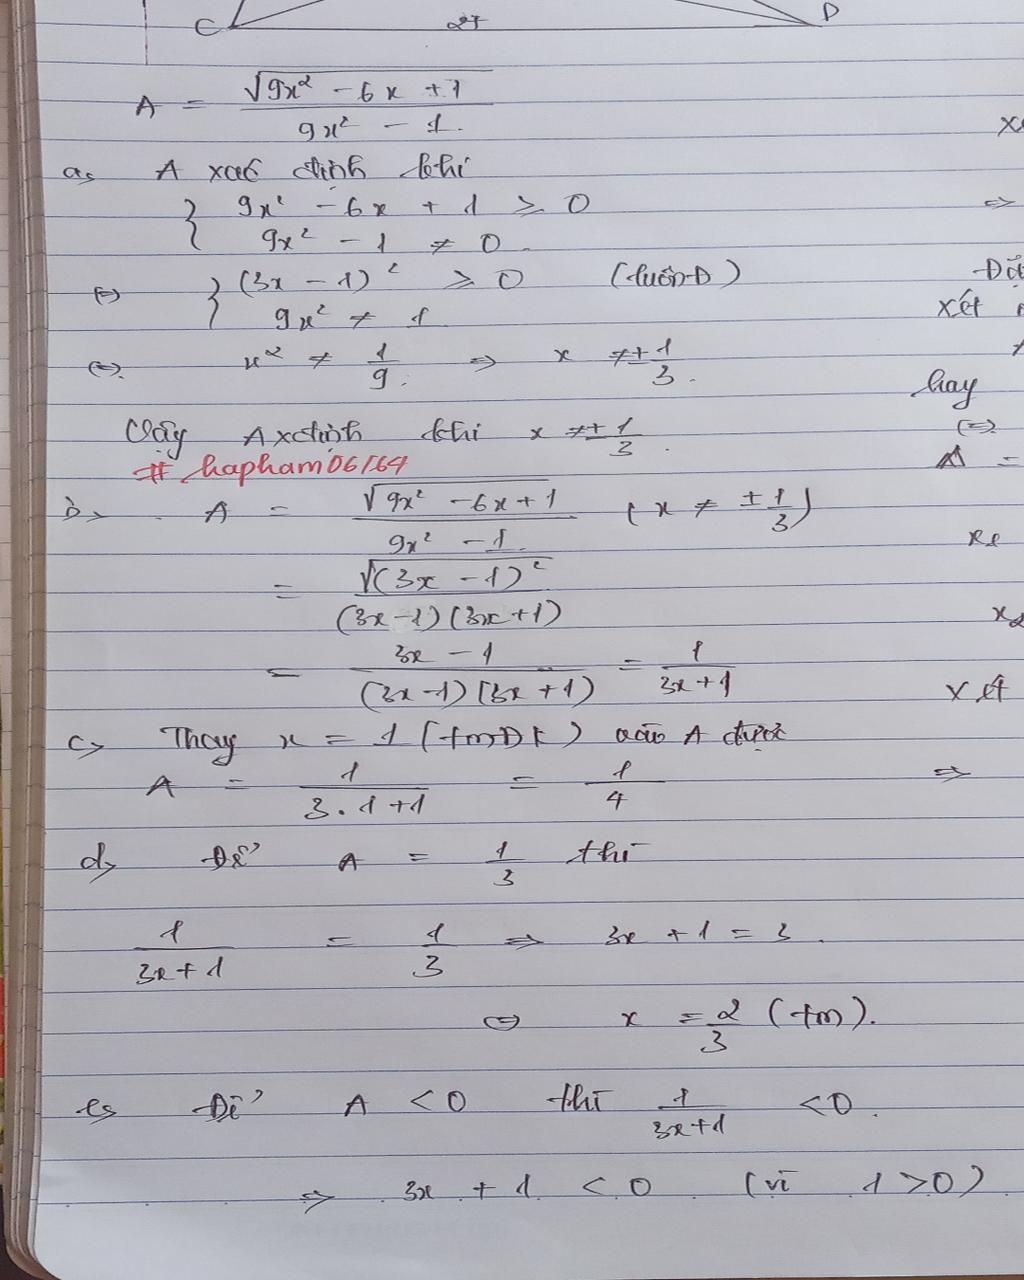 C 25 D
A = √9x² - 6x + 1 / 9x² - 1.
a, A xác định khi
{ 9x² - 6x + 1 ≥ 0
9x² - 1 ≠ 0
⇔ { (3x - 1)² ≥ 0 (luôn Đ)
9x² ≠ 1
⇔ x² ≠ 1/9. ⇒ x ≠ ± 1/3.
Vậy A xđịnh khi x ≠ ± 1/3.
# hapham06164
b, A = √9x² - 6x + 1 / 9x² - 1. (x ≠ ± 1/3)
= √(3x - 1)² / (3x - 1)(3x + 1)
= 3x - 1 / (3x - 1)(3x + 1) = 1 / 3x + 1
c, Thay x = 1 (tmĐK) vào A được
A = 1 / 3.1 + 1 = 1/4
d, Để A = 1/3 thì
1 / 3x + 1 = 1/3 ⇒ 3x + 1 = 3.
⇔ x = 2/3 (tm).
e, Để A < 0 thì 1 / 3x + 1 < 0.
⇒ 3x + 1 < 0 (vì 1 > 0)
⇒
xét
hay
⇔
A =
xét
⇒